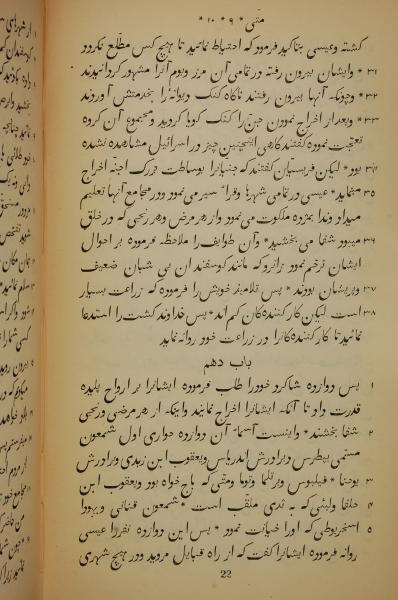 متّی * ۹ * ۱۰ *
کشته وعیسی بتاکید فرمود که احتیاط نمائید تا هیچ کس مطّلع نکردد
۳۱ * وایشان بیرون رفته در تمامی آن مرز وبوم آنرا مشهور کردانیدند
۳۲ * وچونکه آنها بیرون رفتند ناکاه کنک دیوانهٔ را بخدمتش آوردند
۳۳ * وبعد از اخراج نمودن جنّ را کنک کویا کردید ومجموع آن کروه
تعجّب نموده کفتند کاهی اینچنین چیز در اسرائیل مشاهده نشده
۳۴ بود * لیکن فریسیان کفتند که جنّیانرا بوساطت بزرک اجنّه اخراج
۳۵ مینماید * عیسی در تمامی شهرها وقراء سیر می نمود ودر مجامع آنها تعلیم
میداد وندا بمژدهٔ ملکوت می نمود واز هر مرض وهر رنجی که در خلق
۳۶ میبود شفا می بخشید * وآن طوایف را ملاحظه فرموده بر احوال
ایشان ترحّم نمود زانرو که مانند کوسفندان بی شبان ضعیف
۳۷ وپریشان بودند * پس تلامیذ خویش را فرمود که زراعت بسیار
۳۸ است لیکن کارکننده کان کم اند * پس خداوند کشت را استدعا
نمائید تا کارکننده کانرا در زراعت خود روانه نماید
باب دهم
۱ پس دوازده شاکرد خود را طلب فرموده ایشانرا بر ارواح پلیده
قدرت داد تا آنکه ایشانرا اخراج نمایند واینکه از هر مرضی ورنجی
۲ شفا بخشند * واینست اسمآء آن دوازده حواری اول شمعون
مسمّی بپطرس وبرادرش اندریاس ویعقوب ابن زبدی وبرادرش
۳ یوحنا * فیلبوس وبرتلما وتوما ومتّی که باج خواه بود ویعقوب ابن
۴ حلفا ولبّئی که به تدّی ملقّب است * شمعون قنانی ویهودا
۵ اسخریوطی که اورا خیانت نمود * پس این دوازده نفررا عیسی
روانه فرموده ایشانرا کفت که از راه قبایل مروید ودر هیچ شهری
22